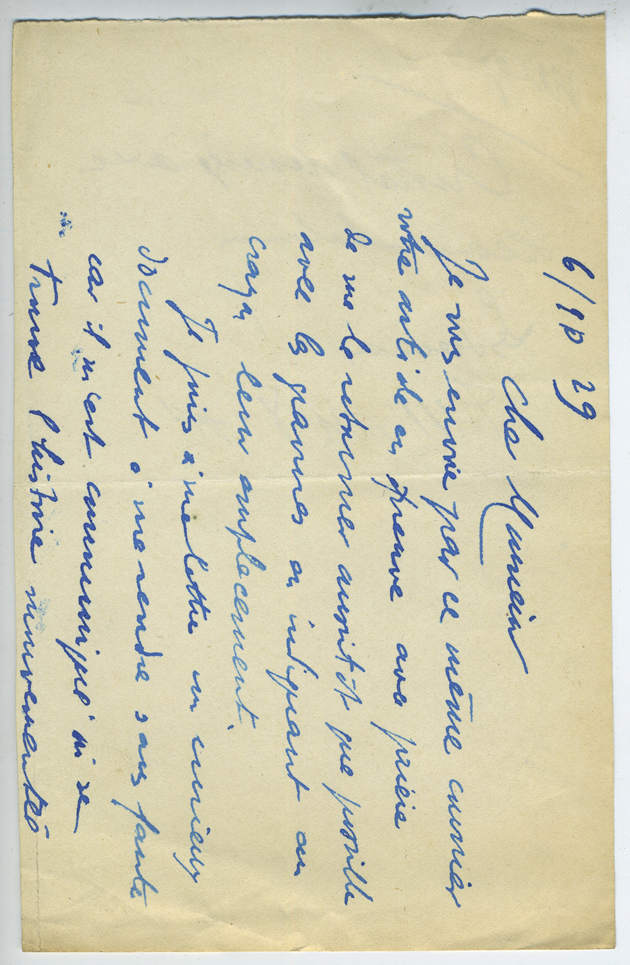 6/9 29
Cher Monsieur
Je vous envoie par ce même courrier
votre article en épreuve avec prière
de me le retourner aussitôt que possible
avec les gravures en indiquant au
crayon leur emplacement.
Je joins à ma lettre un curieux
document à me rendre sans faute
car il m'est communiqué où se
trouve l'histoire mouvementée